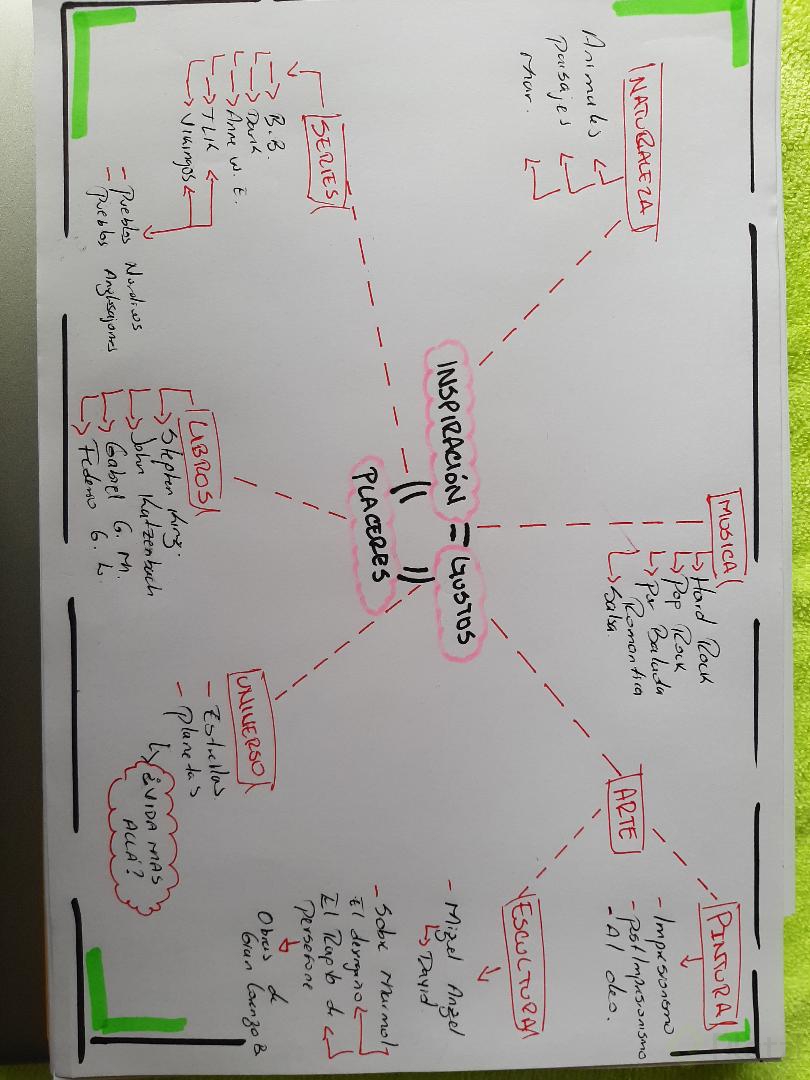 NATURALEZA
Animales
paisajes
mar.
MUSICA
Hard Rock
Pop Rock
Pop Balada
Romantica
Salsa.
PINTURA
- Impresionismo
- postImpresionismo
- Al oleo.
ARTE
ESCULTURA
- Migel Angel
David
- Sobre marmol
El desengaño
El Rapto de
Persefone
Obras de
Gian Lorenzo B
INSPIRACIÓN = GUSTOS
PLACERES
SERIES
B.B.
Dark
Anne W. E.
TLK
Vikingos
- Pueblos Nordicos
- Pueblos Anglosajones
LIBROS
Stephen King.
John Katzenbach
Gabriel G. M.
Federico G. L.
UNIVERSO
- Estrellas.
- Planetas
¿VIDA MAS
ALLÁ?